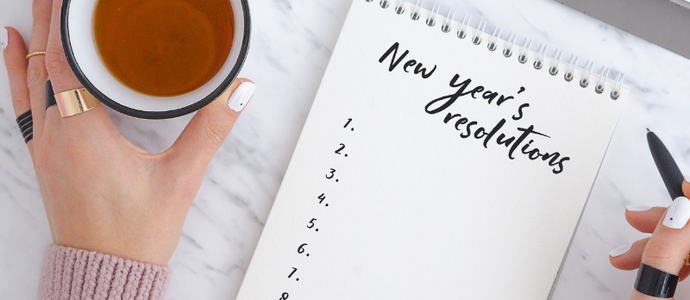 New year's
resolutions
1.
2.
3.
4.
5.
6.
7.
8